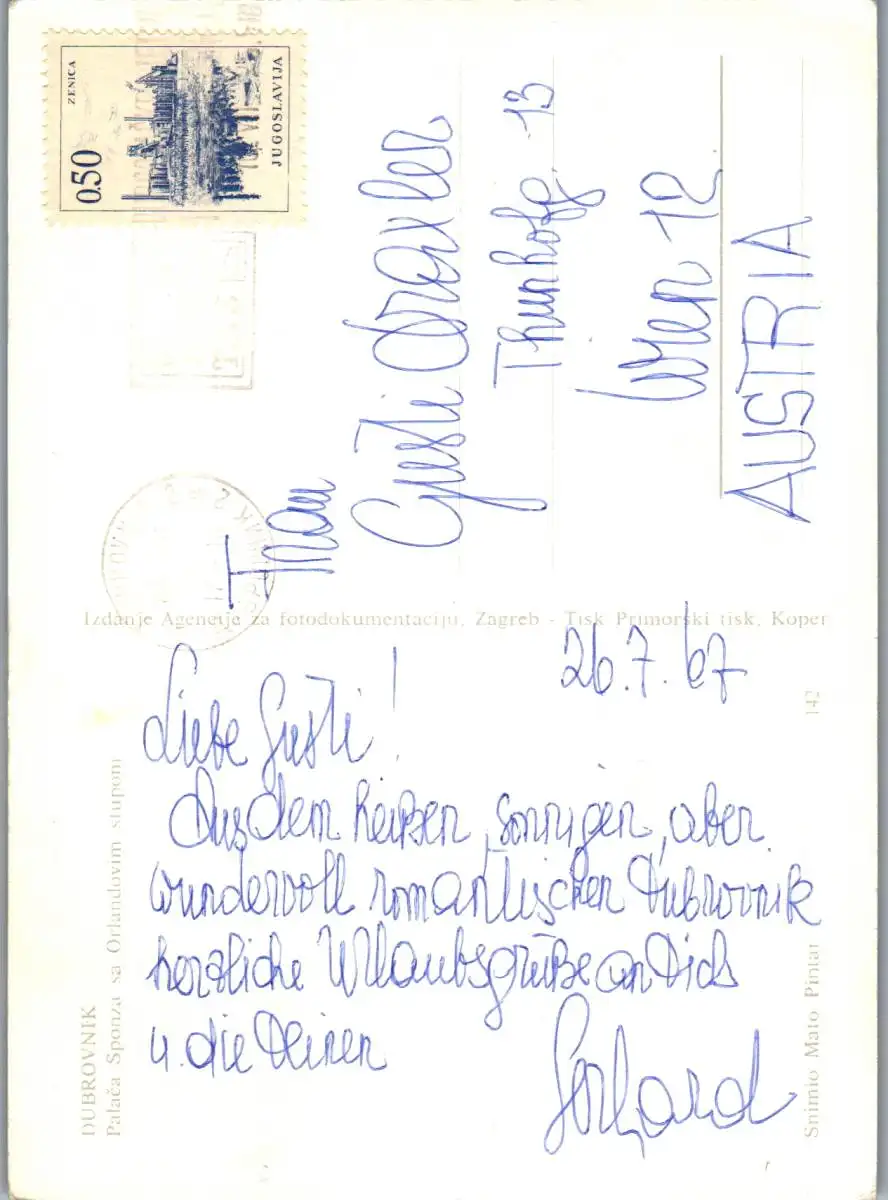 DUBROVNIK
Palača Sponza sa Orlandovim stupom
26.7.67
Liebe Gusti!
Aus dem heißen, sonnigen, aber
wundervoll romantischen Dubrovnik
herzliche Urlaubsgrüße an Dich
u. die Deinen
Gerhard
Snimio Mato Pintar
142
Izdanje Agencije za fotodokumentaciju, Zagreb - Tisk Primorski tisk, Koper
ZENICA
0.50
JUGOSLAVIJA
Frau
Gusti Draxler
Thunhofg. 13
Wien 12.
AUSTRIA